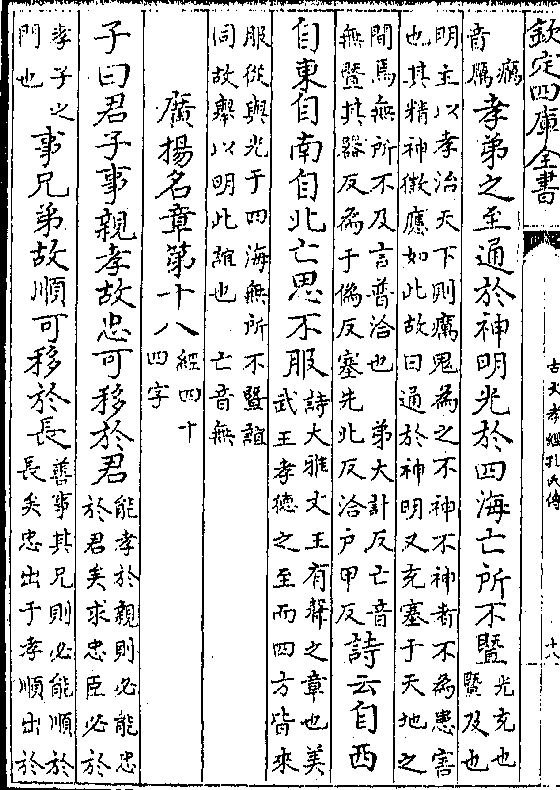 欽定四庫全書
古文孝經孔氏傳
十八
癘
音厲
孝弟之至通於神明光於四海亡所不暨
光充也
暨及也
明主以孝治天下則癘鬼為之不神不神者不為患害
也其精神徵應如此故曰通於神明又充塞于天地之
間焉無所不及言普洽也　弟大計反亡音
無暨其器反為于偽反塞先北反洽戶甲反
詩云自西
自東自南自北亡思不服
詩大雅文王有聲之章也美
武王孝德之至而四方皆來
服從與光于四海無所不暨誼
同故舉以明此誼也　亡音無
廣揚名章第十八
經四十
四字
子曰君子事親孝故忠可移於君
能孝於親則必能忠
於君矣求忠臣必於
孝子之
門也
事兄弟故順可移於長
善事其兄則必能順於
長矣忠出于孝順出於